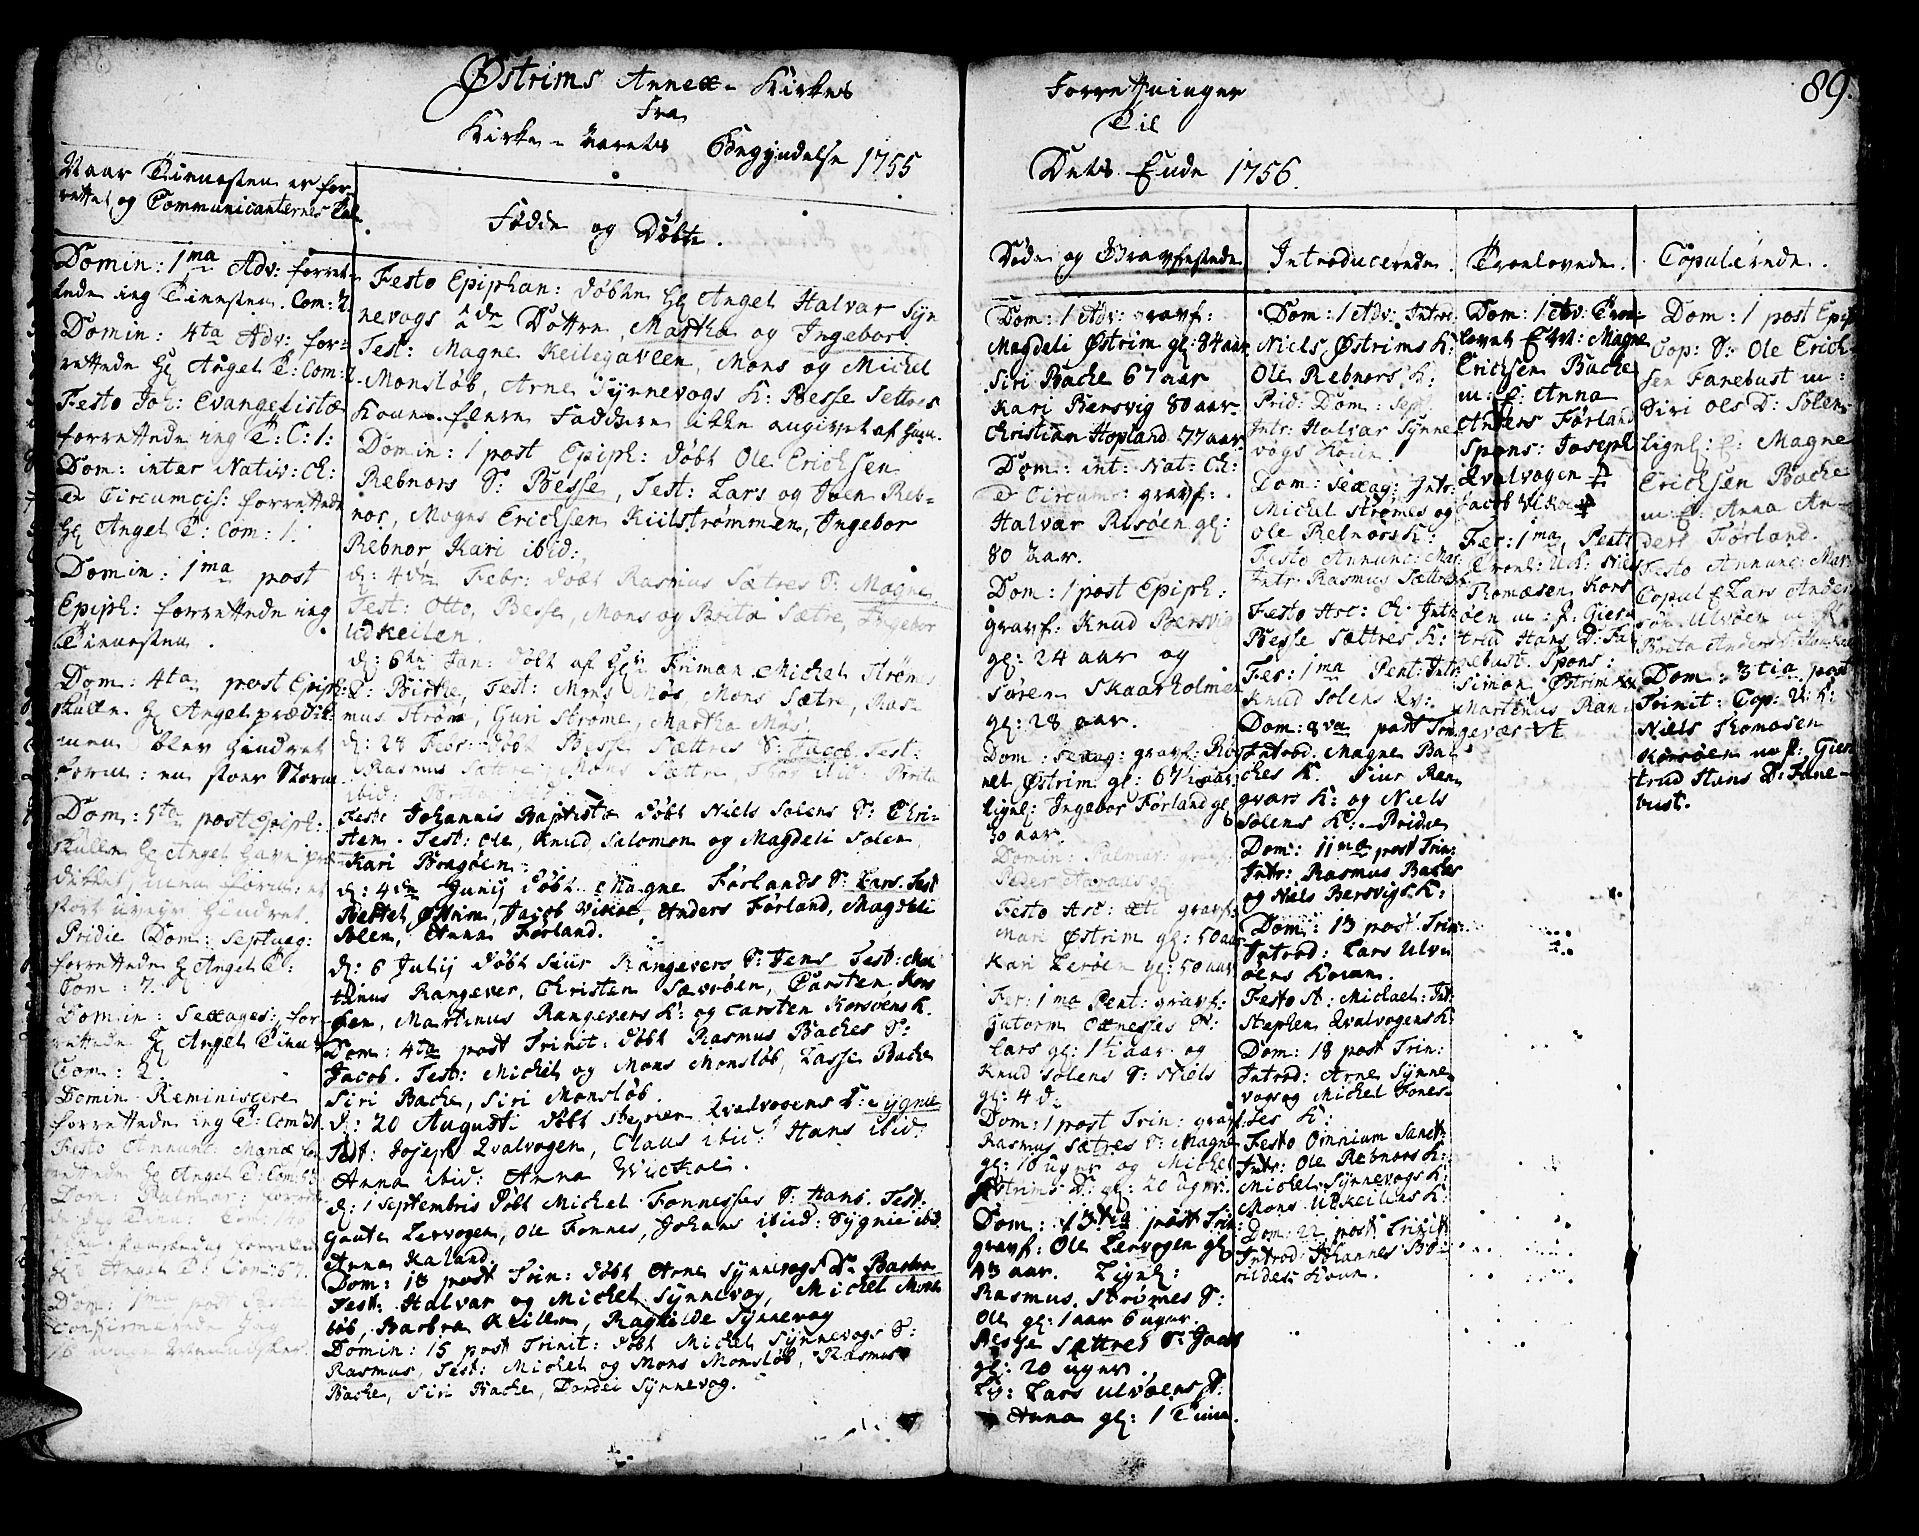 Østrims Annex-Kirkes
Fra
Kirke-Aarets Begyndelse 1755
Forretninger
Til
Dets Ende 1756.
89.
Naar Tienesten er for-
rettet og Communicanternes Tal.
Domin: 1ma Adv: forret-
tede ieg Tienesten. Com: 2.
Domin: 4ta Adv: for-
rettede Hr Angel T: Com:
Festo Joh: Evangelistæ
forrettede ieg T: C: 1:
Dom: inter Nativ: Ch:
et Circumcis: forrettede
Hr Angel T: Com: 1.
Domin: 1ma post
Epiph: forrettede ieg
Tienesten.
Dom: 4ta post Epiph:
skulle Hr Angel prædik
men blev hindret
form: en stoer Storm
Dom: 5ta post Epiph:
skulle Hr Angel have præ-
diket, men form: et
stort uveyr hindret.
Pridie Dom: Septuag:
forrettede Hr Angel T:
Com: 7.
Domin: Sexages: for-
rettede Hr Angel Tienest
Com: 2.
Domin Reminiscere
forrettede ieg T: Com:
Festo Annunt: Mariæ for
rettede Hr Angel T: Com:
Dom: Palmar: forrett
Hr Angel T: Com: 57.
Dom: 1ma post
confirmerede Jeg
Fødde og Døbte.
Festo Epiphan: døbte Hr Angel Halvar Syn
nevogs 2de Døttre, Martha og Ingebor.
Test: Magne Keilegaveen, Mons og Michel
Monsløb, Arne Synnevogs K: Besse Settres
Kone. fleere Faddere ikke angivet af ham.
Domin: 1 post Epiph: døbt Ole Erichsen
Rebnors S: Besse, Test: Lars og Joen Reb-
nor, Mogns Erichsen Kiilstrømmen, Ingebor
Rebnor Kari ibid:
d: 4de Febr: døbt Rasmus Sætres S: Magne.
Test: Otto, Besse, Mons og Brita Sætre, Ingebor
Udkeilen.
d: 6te Jan: døbt af Hr Friman Michel Strømes
D: Birthe, Test: Mons Møs, Mons Sætre, Ras-
mus Strøm, Guri Strøme, Martha Møs.
d: 28 Febr: døbt Besse Sættres S: Jacob. Test:
Rasmus Sættre Mons Sættre Thor ibid: Brita
ibid: Brita
Fest: Johannis Baptistæ døbt Niels Solens S: Chri-
sten. Test: Ole, Knud Salomon og Magdeli Solen,
Kari Bragøen.
d: 4de Junij døbt Magne Førlands S: Lars. Test
Bertel Østrim, Jacob Vikøe, Anders Førland, Magdeli
Solen, Anna Førland.
d: 6 Julij døbt Siur Rangevers S: Jens Test: Mar
tinus Rangever, Christen Sævrøen, Carsten Kors
øen, Martinus Rangevers K: og Carsten Korsøens K.
Dom: 4ta post Trinit: døbt Rasmus Baches S:
Jacob. Test: Michel og Mons Monsløb, Lasse Bache
Siri Bache, Siri Monsløb.
d: 20 Augusti døbt Stephen Qvalvogens D: Sygnie
Test: Joseph Qvalvogen, Claus ibid: Hans ibid:
Anna ibid: Anna Wickøi.
d: 1 Septembris døbt Michel Fonnesses S: Hans. Test:
Gaute Lervogen, Ole Fonnes, Johans ibid: Sygnie ibid.
Anna Kaland.
Dom: 13 post Trin: døbt Arne Synnevogs Dr Barbra
Test: Halvar og Michel Synnevog, Michel Mons
løb, Barbra Keilen, Raghilde Synnevog
Domin: 15 post Trinit: døbt Michel Synnevogs S:
Rasmus, Test: Michel og Mons Monsløb, Rasmus
Bache, Siri Bache, Dordei Synnevog.
Døde og Gravfestede
Dom: 1 Adv: gravf:
Magdeli Østrim gl: 84 aar
Siri Bache 67 aar
Kari Bersvig 80 aar
Christian Hopland 77 aar
Dom: int: Nat: Ch:
et Circumc: gravf:
Halvar Risøen gl:
80 Aar.
Dom: 1 post Epiph:
gravf: Knud Bersvig
gl: 24 aar og
Søren Skaarholmen
gl: 28 aar.
Dom: Sexag: gravf:
Østrim gl: 67½ aar
ligel: Ingebor Førland gl
50 aar.
Domin: Palmar: gravf:
Peder
Festo Asc: gravf:
Mari Østrim gl: 50 aar
Kari Lerøen gl: 50 aar
Fer: 1ma Pent: gravf:
Gutorm S:
Lars gl: aar og
Knud Solens S: Niels
gl: 4 d:
Dom: 1 post Trin: gravf:
Rasmus Sætres S: Magne
gl: 16 uger og Michel
Østrims D: gl: 20 uger.
Dom: 13tia post Trin:
gravf: Ole Lervogen gl
43 aar. Ligel:
Rasmus Strømes S:
Ole gl: 1 aar 6 uger.
Besse Sættres S: Jacob
gl: 20 uger.
Lig: Lars Ulvøens D:
Anna gl: 1 Time.
Introducerede.
Dom: 1 Adv: Intr:
Niels Østrims K:
Ole Rebnors K:
Prid: Dom: Sept
Intr: Halvar Synne
vogs Kone.
Dom: Sexag: Intr:
Michel Strømes og
Ole Rebnors K:
Festo Annunc: Mar:
Intr: Rasmus Sættres
Festo Asc: Ch: Intr
Besse Sættres K:
Fer: 1ma Pent: Intr
Knud Solens Qv:
Dom: 8va post Trin
Introd: Magne Ba-
ches K. Siur Ran
gvars K: og Niels
Solens K: Pridie
Dom: 11ma post Trin:
Intr: Rasmus Baches
og Niels Bersvigs K:
Dom: 13 post Trin:
Introd: Lars Ulv
øens Kone.
Festo St: Michael: Int:
Stephen Qvalvogens K:
Dom: 18 post Trin:
Introd: Arne Synne-
vogs og Michel Fones-
ses K:
Festo Omnium Sanct:
Intr: Ole Rebnors K:
Michel Synnevogs K:
Mons Udkeilens K:
Dom: 22 post Trinit
Introd: Johannes
Kone.
Troelovede.
Dom: 1 Adv: Troe-
lovet E M: Magne
Erichsen Bache
m: P: Anna
Anders Førland
Spons: Joseph
Qvalvogen
Jacob Vikøe
Fer: 1ma Pent:
Troel: U: K: Niels
Thomæsen Kors
øen m: P: Giert
trud Hans D: Fa
nebust. Spons:
Simon Østrim
Martinus Ran-
gevær
Copulerede.
Dom: 1 post Epip
Cop: S: Ole Erich-
sen Fanebust m:
Siri Ols D: Solen
Ligel: E: Magne
Erichsen Bache
m: P: Anna An-
ders Førland.
Festo Annunc: Mar:
Copul E Lars Ander
sen Ulvøen m P:
Brita Anders D:
Dom: 3tia post
Trinit: Cop: U: K:
Niels Thomæsen
Korsøen m P: Giert
trud Hans D: Fane-
bust.